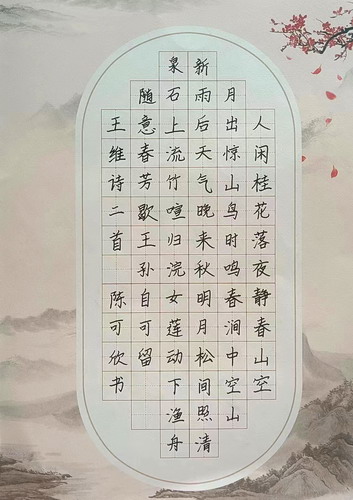 人闲桂花落夜静春山空
月出惊山鸟时鸣春涧中空山
新雨后天气晚来秋明月松间照清
泉石上流竹喧归浣女莲动下渔舟
随意春芳歇王孙自可留
王维诗二首 陈可欣书